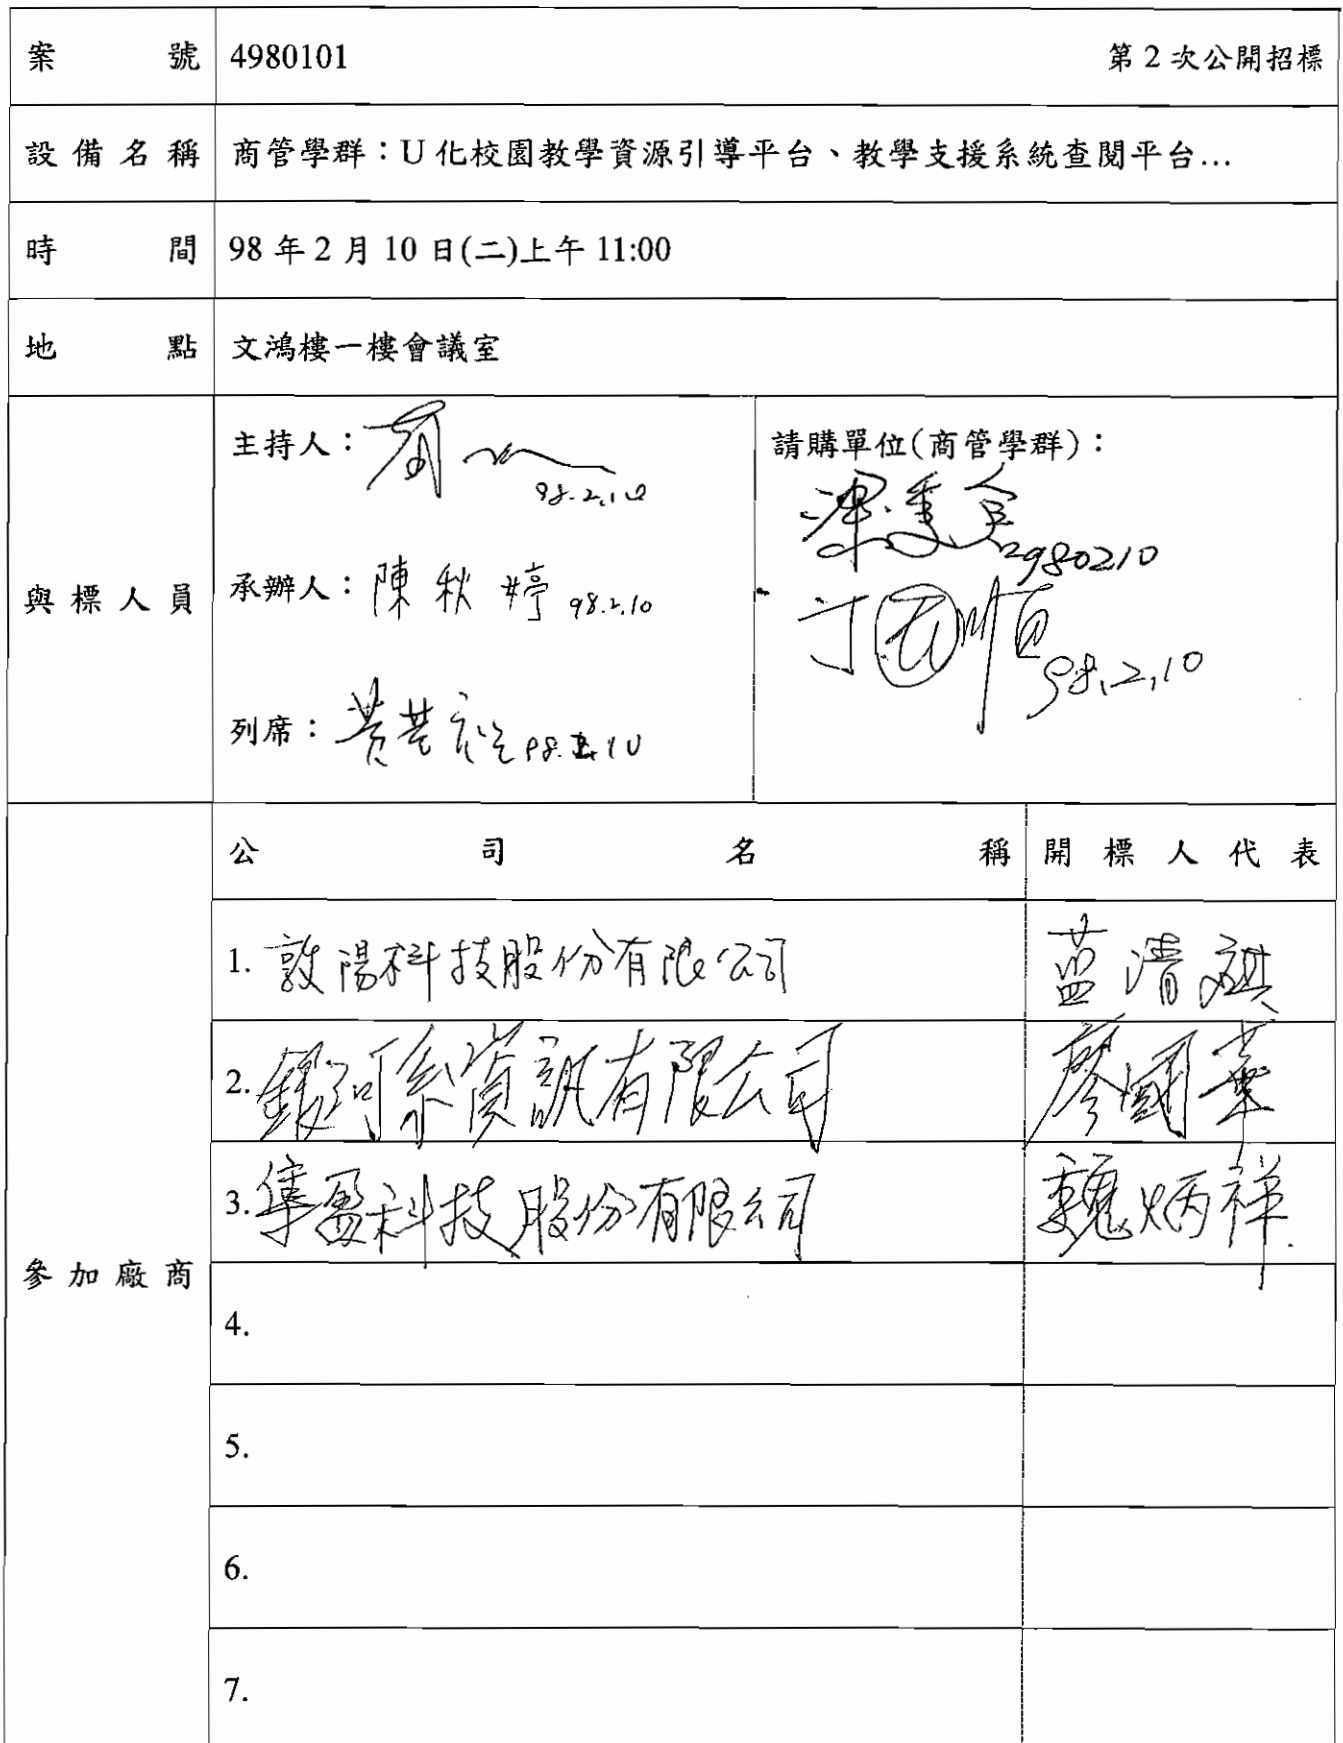 案號 4980101 第2次公開招標
設備名稱 商管學群：U化校園教學資源引導平台、教學支援系統查閱平台...
時間 98年2月10日(二)上午11:00
地點 文鴻樓一樓會議室
與標人員
主持人：
98.2.10
承辦人：陳秋婷 98.2.10
列席：黃 98.2.10
請購單位(商管學群)：
980210
98.2.10
參加廠商
公司名稱 開標人代表
1. 敦陽科技股份有限公司 藍清祺
2. 銀河系資訊有限公司 廖國華
3. 隼盈科技股份有限公司 魏炳祥
4.
5.
6.
7.